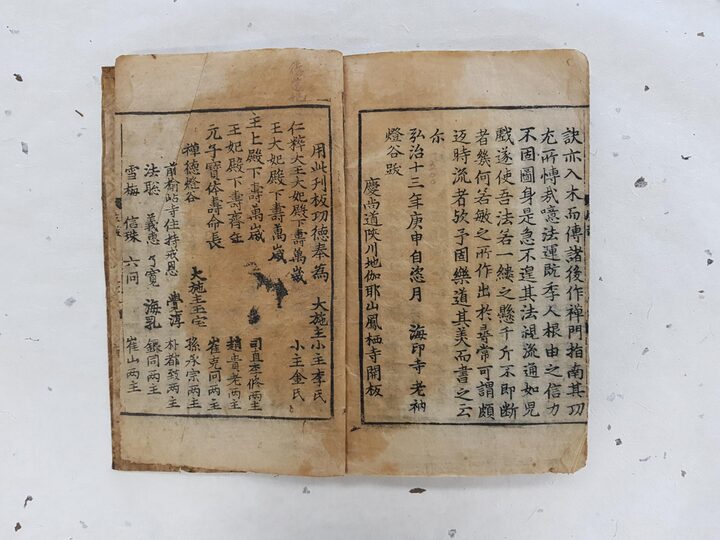 訣亦入木而傳諸後作禪門指南其功
尤所慱哉噫法運旣季人根由之信力
不固圖身是急不遑其法混流通如兒
戱遂使吾法若一縷之懸千斤不即断
者幾何若敏之所作出於尋常可謂頗
迈時流者欤予固樂道其美而書之云
尒
弘治十三年庚申自恣月 海印寺 老衲
燈谷跋
慶尚道陜川地伽耶山鳳栖寺開板
用此刊板功德奉為 大施主小主李氏
仁粹大王大妃殿下壽萬歲 小主金氏
王大妃殿下壽萬歲
主上殿下壽萬歲 司直李條兩主
王妃殿下壽齊年 趙貴老兩主
元子寶体壽命長 崔克同兩主
禅德燈谷 大施主主宅 孫承宗兩主
前楡岾寺住持戒恩 學淳 朴都致兩主
法聡 義惠 了寬 海乳 銀同兩主
雪梅 信珠 六同 崔山兩主